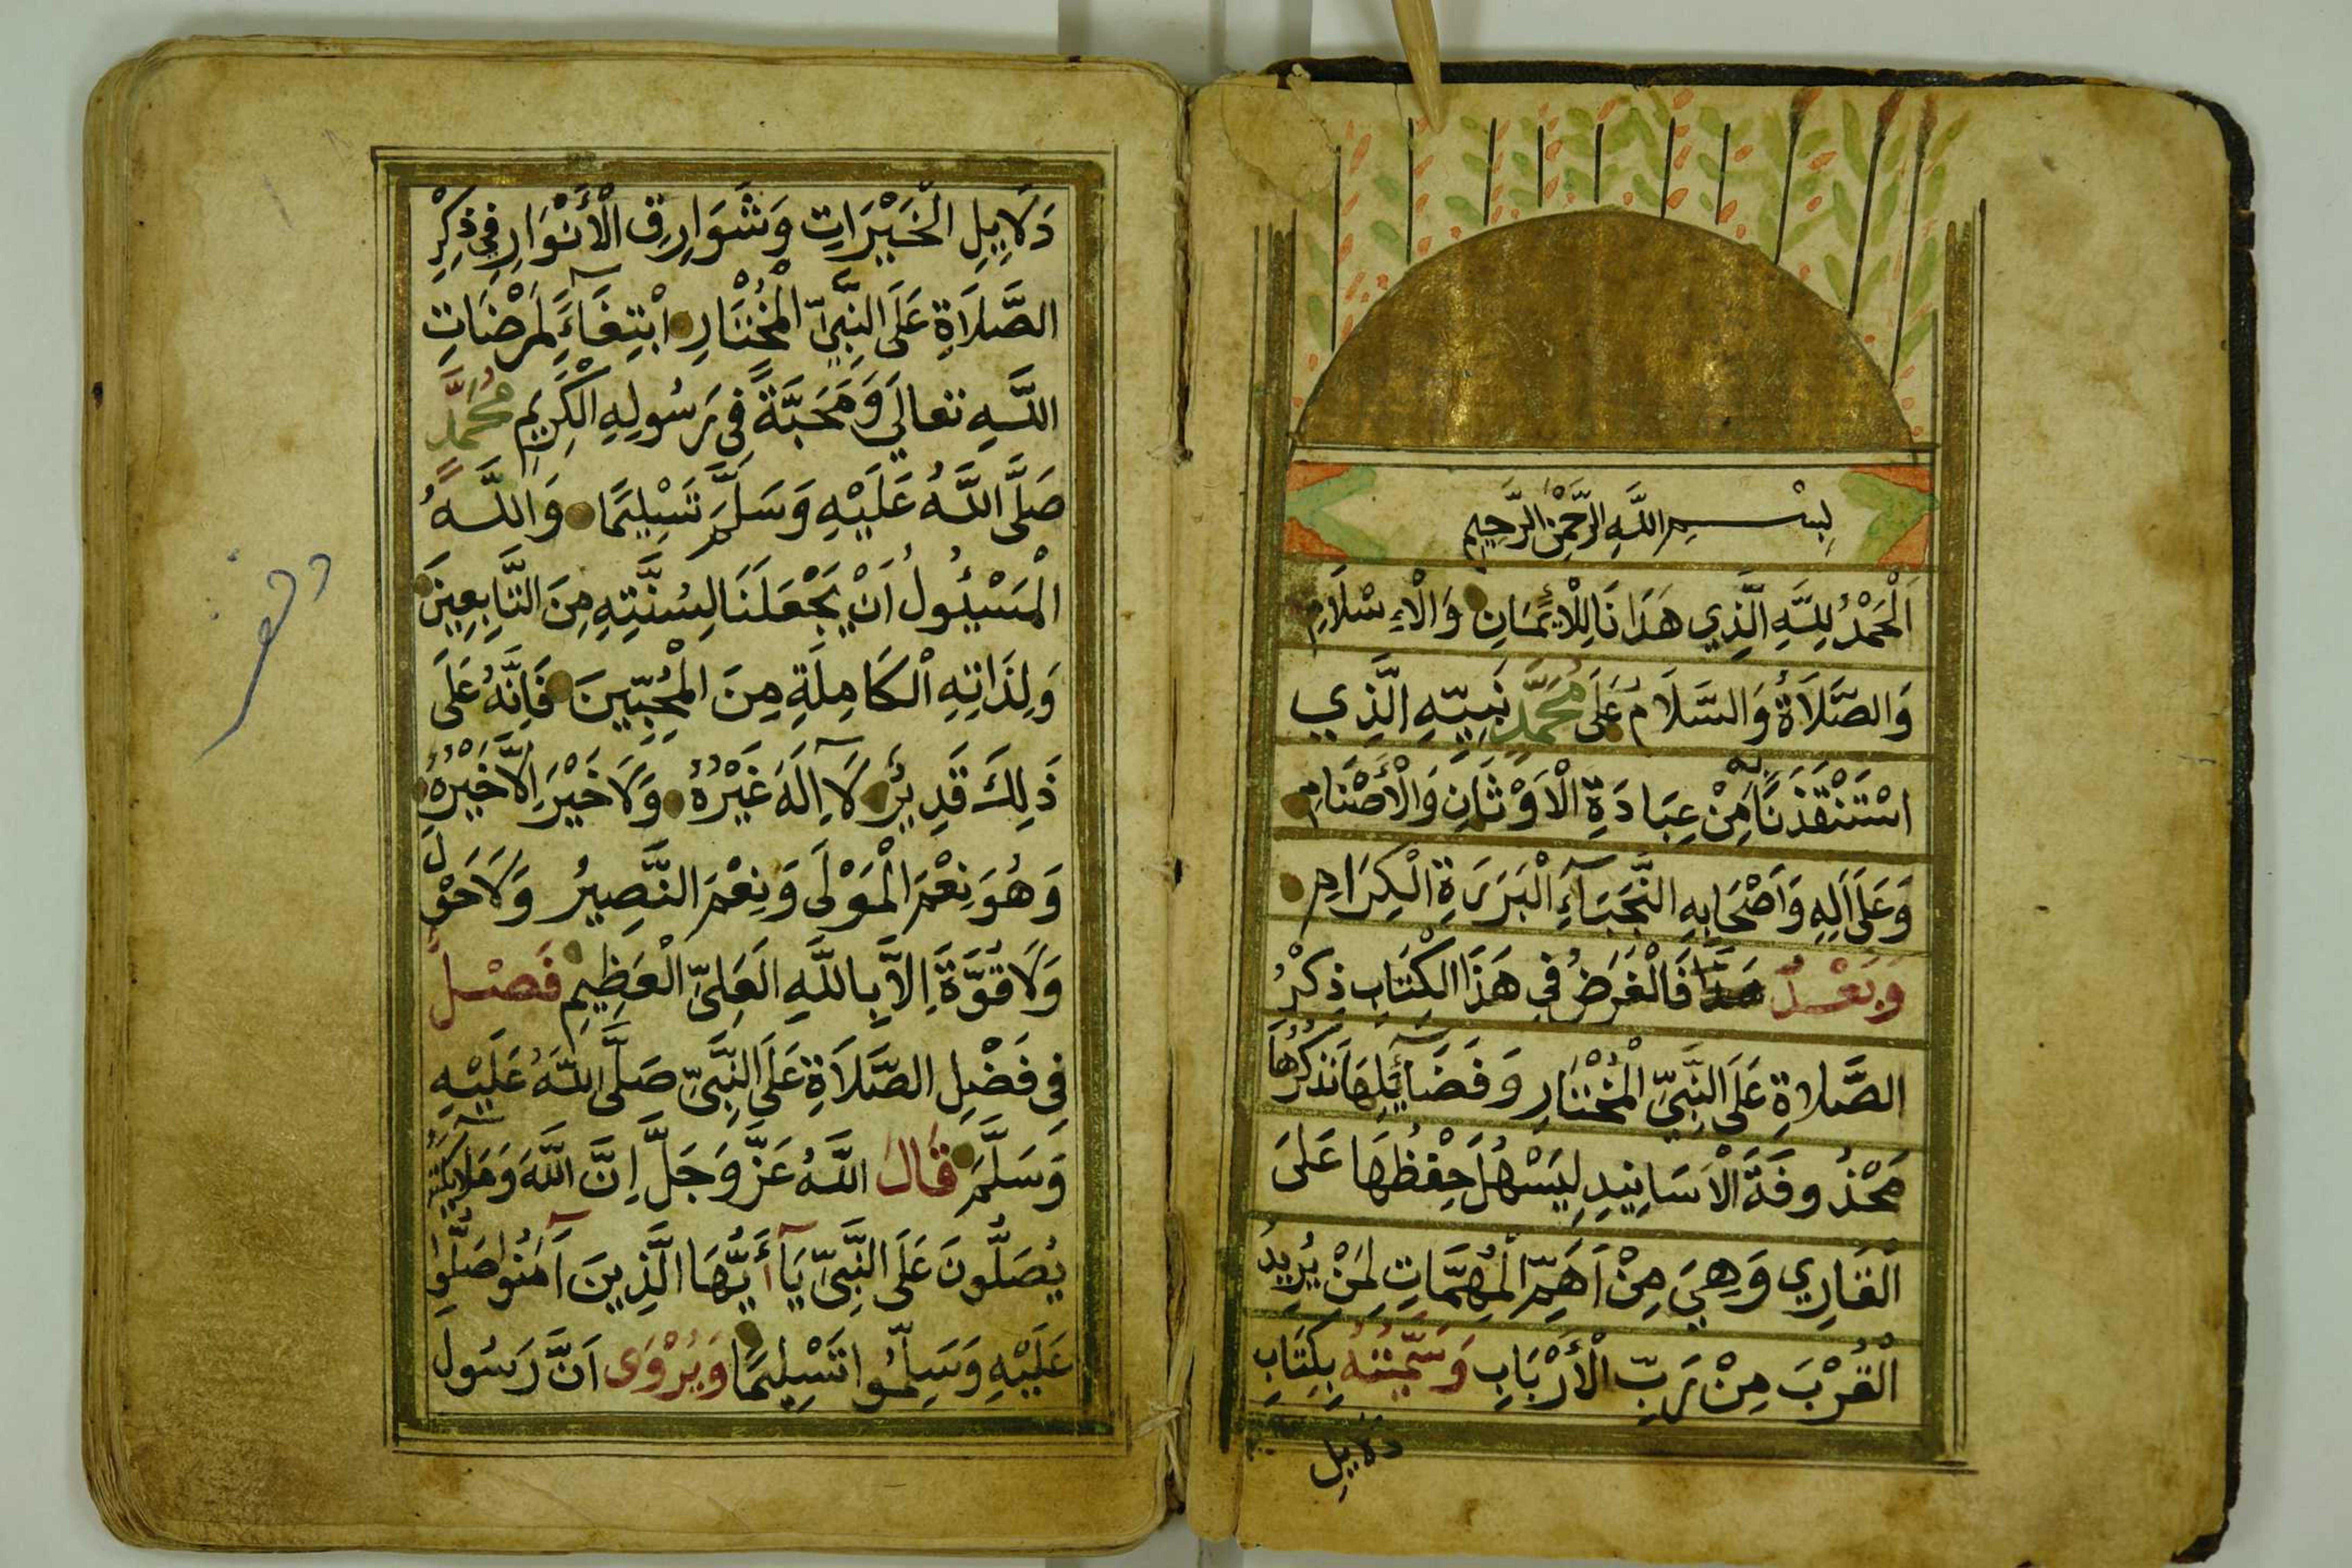 بِسْمِ اللَّهِ الرَّحْمٰنِ الرَّحِيمِ
اَلْحَمْدُ لِلَّهِ الَّذِي هَدَانَا لِلْاِيْمَانِ وَالْاِسْلَامِ
وَالصَّلَاةُ وَالسَّلَامُ عَلَى مُحَمَّدٍ نَبِيِّهِ الَّذِي
اسْتَنْقَذَنَا بِهِ مِنْ عِبَادَةِ الْاَوْثَانِ وَالْأَصْنَامِ
وَعَلَى اٰلِهِ وَاَصْحَابِهِ النُّجَبَآءِ الْبَرَرَةِ الْكِرَامِ
وَبَعْدُ هَذَا فَالْغَرَضُ فِي هَذَا الْكِتَابِ ذِكْرُ
الصَّلَاةِ عَلَى النَّبِيِّ الْمُخْتَارِ وَفَضَآئِلِهَا نَذْكُرُهَا
مَحْذُوفَةَ الْاَسَانِيدِ لِيَسْهُلَ حِفْظُهَا عَلَى
الْقَارِي وَهِيَ مِنْ اَهَمِّ الْمُهِمَّاتِ لِمَنْ يُرِيدُ
الْقُرْبَ مِنْ رَبِّ الْأَرْبَابِ وَسَمَّيْتُهُ بِكِتَابِ
دَلَايِلِ
دَلَايِلِ الْخَيْرَاتِ وَشَوَارِقِ الْأَنْوَارِ فِي ذِكْرِ
الصَّلَاةِ عَلَى النَّبِيِّ الْمُخْتَارِ ابْتِغَآءً لِمَرْضَاتِ
اللَّهِ تعالَي وَمَحَبَّةً فِى رَسُولِهِ الْكَرِيمِ مُحَمَّدٍ
صَلَّى اللَّهُ عَلَيْهِ وَسَلَّمَ تَسْلِيمًا وَاللَّهُ
الْمَسْئُولُ اَنْ يَجْعَلَنَا لِسُنَّتِهِ مِنَ التَّابِعِينَ
وَلِذَاتِهِ الْكَامِلَةِ مِنَ الْمُحِبِّينَ فَاِنَّهُ عَلَى
ذَلِكَ قَدِيرٌ لَآ اِلَهَ غَيْرُهُ وَلَا خَيْرَ اِلَّا خَيْرُهُ
وَهُوَ نِعْمَ الْمَوْلَى وَنِعْمَ النَّصِيرُ وَلَا حَوْلَ
وَلَا قُوَّةَ اِلَّا بِاللَّهِ الْعَلِىِّ الْعَظِيمِ فَصْلٌ
فِى فَضْلِ الصَّلَاةِ عَلَى النَّبِىِّ صَلَّى اللَّهُ عَلَيْهِ
وَسَلَّمَ قَالَ اللَّهُ عَزَّ وَجَلَّ اِنَّ اللَّهَ وَمَلَآئِكَتَهُ
يُصَلُّونَ عَلَى النَّبِىِّ يَآ أَيُّهَا الَّذِينَ آمَنُوا صَلُّوا
عَلَيْهِ وَسَلِّمُوا تَسْلِيمًا وَيُرْوَى اَنَّ رَسُولَ